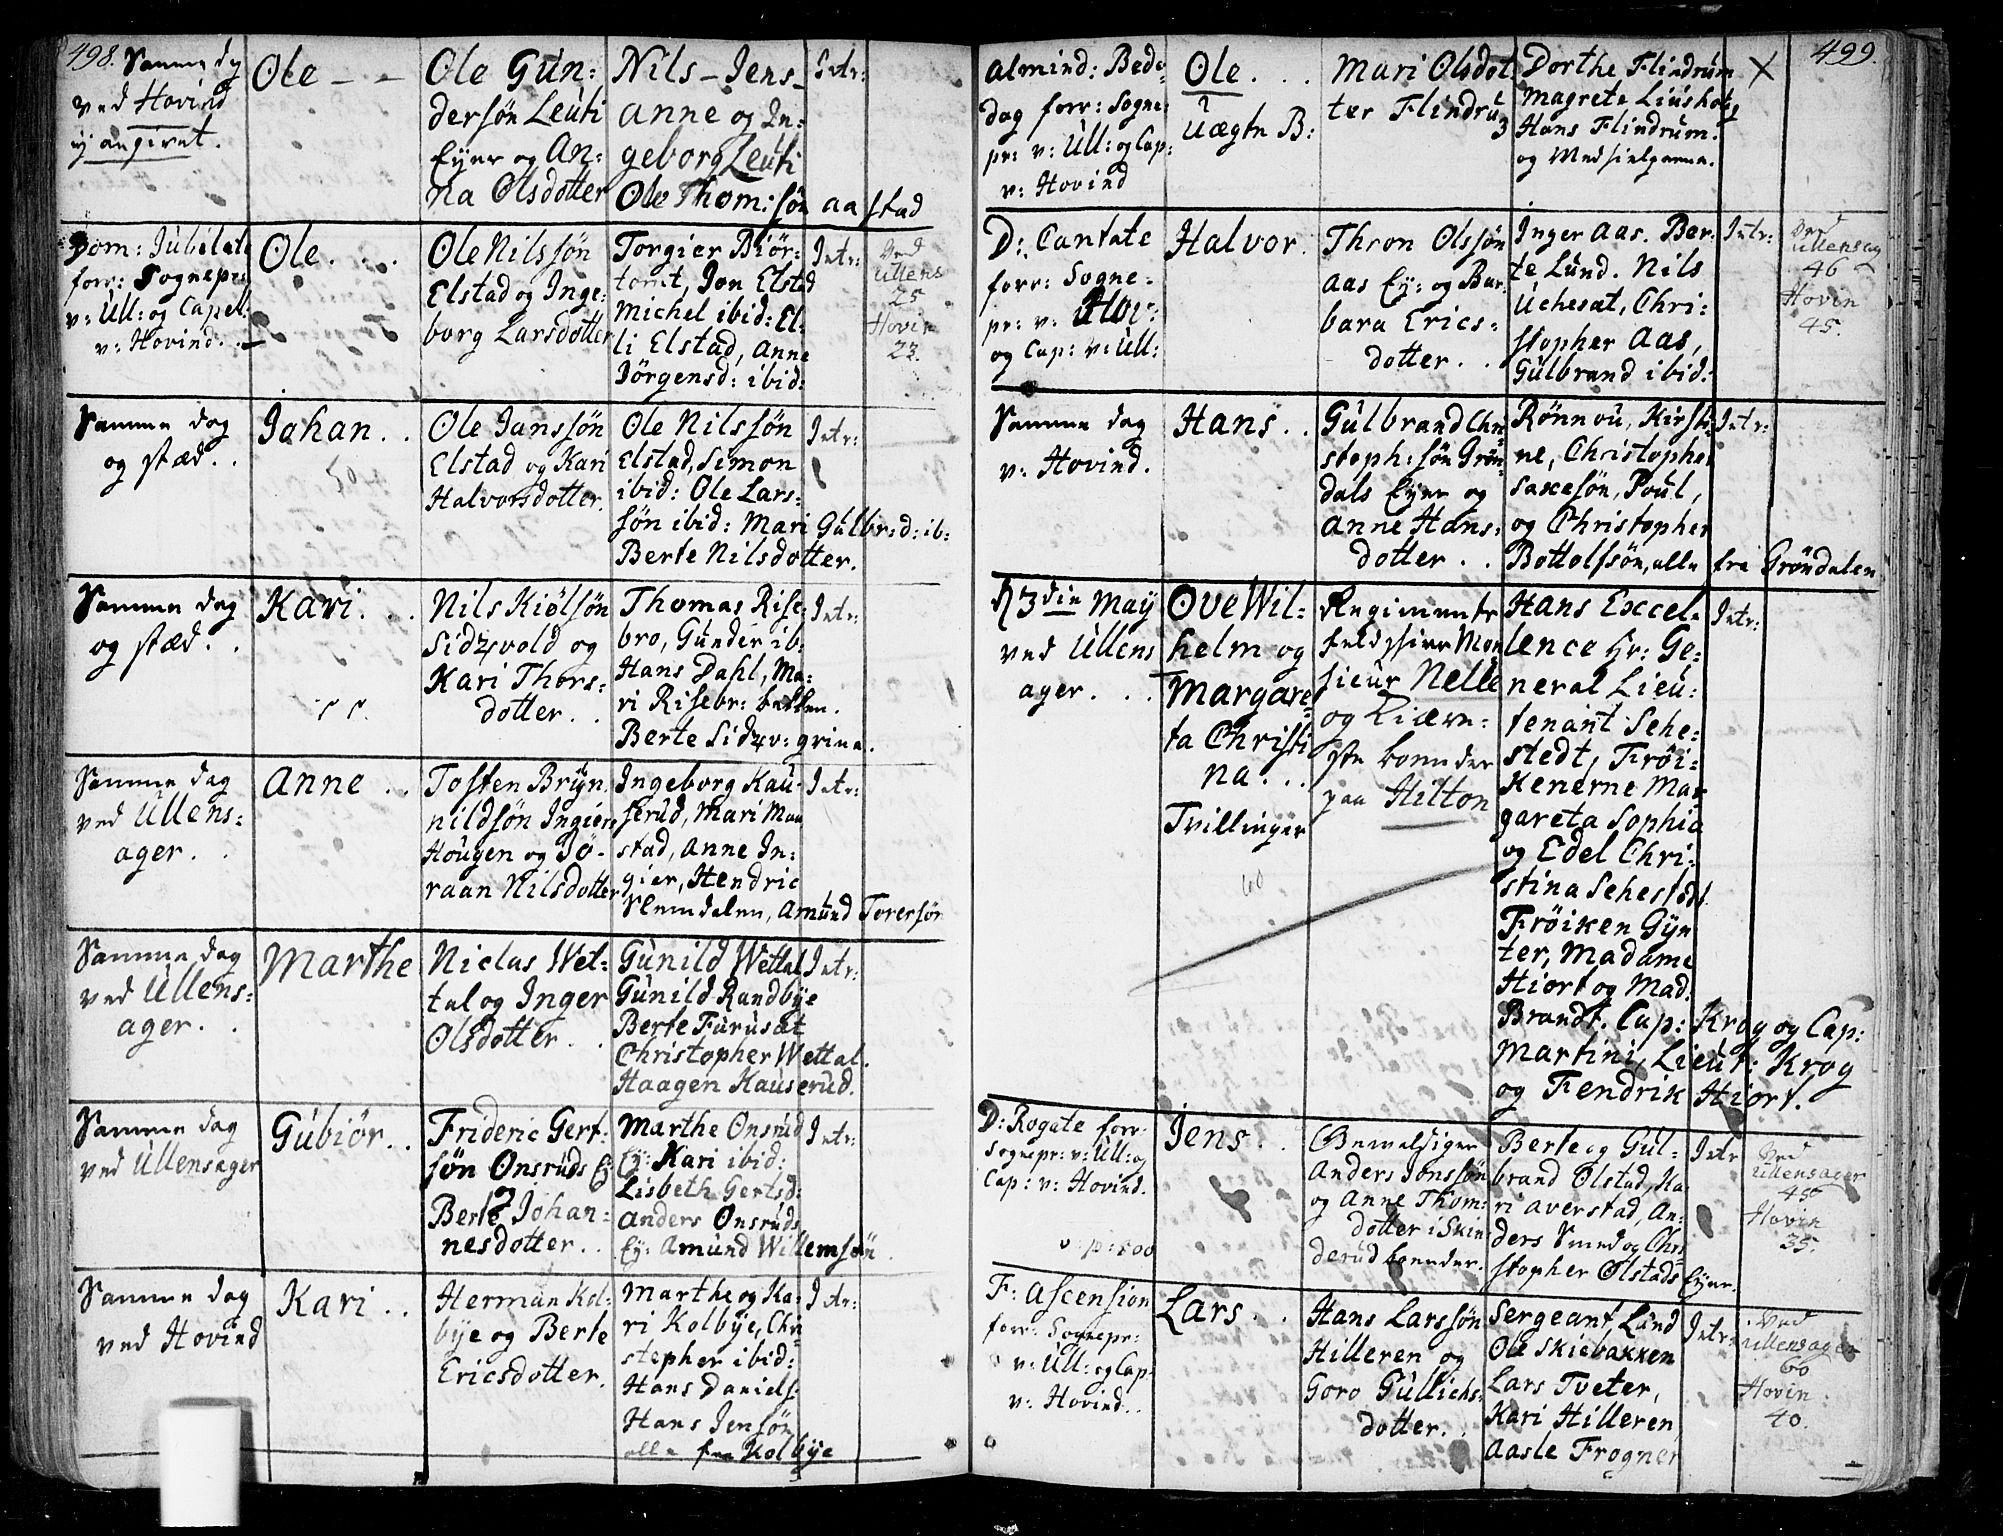 498.
Samme dag
ved Hovind
ej angivet.
Ole
Ole Gun:
dersøn Leuti
Eyer og An:
na Olsdotter
Nils Jens
Anne og In:
geborg Leuti
Ole Thom: søn aastad
Intr:
Dom: Jubilate
forr: Sognepr:
v: Ull: og Capel:
v: Hovind.
Ole.
Ole Nilssøn
Elstad og Inge:
borg Larsdotter
Torgier Biør:
tomt, Jon Elstad
Michel ibid: El:
li Elstad, Anne
Jörgensd: ibid:
Intr:
Ved
Ullens
25
Hovin
23.
Samme dag
og stæd.
Johan.
Ole Janssøn
Elstad og Kari
Halvorsdotter.
Ole Nilssøn
Elstad, Simon
ibid: Ole Lars:
søn ibid: Mari Gulbr: d: ib:
Berte Nilsdotter.
Intr:
Samme dag
og stæd.
Kari.
Nils Kiølsøn
Sidzvold og
Kari Thors:
dotter.
Thomas Rise:
bro, Gunder ib:
Hans Dahl, Ma:
ri Risebr: betten.
Berte Sidzv: grina.
Intr:
Samme dag
ved Ullens:
ager.
Anne
Tosten Bryn
nildsøn Ingiers
Hougen og Jö:
raan Nilsdotter
Ingeborg Kau:
serud, Mari Mau
stad, Anne In:
gier, Hendric
Slemdalen, Amund Torersøn
Intr:
Samme dag
ved Ullens:
ager.
Marthe
Niclas Wet:
tal og Inger
Olsdotter.
Gunild Wettal
Gunild Randbye
Berte Furuset
Christopher Wettal.
Haagen Kauserud.
Intr:
Samme dag
ved Ullensager
Gubiør.
Frideric Gert:
søn Onsruds Ey
Berte Johan:
nesdotter.
Marthe Onsrud
Ey: Kari ibid:
Lisbeth Gertsd:
Anders Onsruds
Ey: Amund Willemsøn.
Intr:
Samme dag
ved Hovind
Kari.
Herman Kol:
bye og Berte
Ericsdotter.
Marthe og Ka:
ri Kolbye, Chri
stopher ibid:
Hans Daniels.
Hans Jensøn
alle fra Kolbye
Intr:
499.
Almind: Bede:
dag forr: Sogne:
pr: v: Ull: og Cap:
v: Hovind
Ole.
Uægte B:
Mari Olsdot
ter Flindru
Dorthe Flindrum
Magrete Liushoug
Hans Flindrum.
og Medhielperne.
X
D: Cantate
forr: Sogne:
pr: v: Hov:
og Cap: v: Ull:
Halvor.
Thron Olssøn
Aas Ey: og Bar:
bara Erics:
dotter.
Inger Aas. Ber:
te Lund. Nils
Uchesat, Chri:
stopher Aas,
Gulbrand ibid:
Intr:
Ved
Ullensag
46
Hovin
45.
Samme dag
v: Hovind.
Hans.
Gulbrand Chri
stoph: søn Grøn
dals Eyer og
Anne Hans:
dotter.
Rönnou, Kirsti:
ne, Christopher
Saxesøn, Poul,
og Christopher
Bottolfsøn, alle fra Gröndalen
Intr:
d 3die May
ved Ullens
ager.
Ove Wil:
helm og
Margare
ta Christi
na.
Tvillinger
60
Regiments
feldskier Mon
sieur Nelle
og Kiære:
ste boender
paa Hilton
Hans Excel:
lence Hr: Ge:
neral Lieu:
tenant Sehe:
stedt, Frøi:
kenerne Mar
gareta Sophia
og Edel Chri:
stina Sehestedt
Frøiken Gyn
ter, Madame
Hiort og Mad:
Brandt. Cap: Krog og Cap:
Martini, Lieut: Krog
og Fendrik Hiort.
Intr:
D: Rogate forr:
Sognepr: v: Ull: og
Cap: v: Hovind.
Jens.
Gevaldiger
Anders Jonssøn
og Anne Thom:
dotter i Skin
derud boender.
Berte og Gul:
brand Olstad, Ka:
ri Averstad, An:
ders Smed og Chri
stopher Olstads Eyer.
Intr
Ved
Ullensager
45
Hovin
35.
F: Ascension
forr: Sognepr:
v: Ull: og Cap:
v: Hovind.
Lars.
Hans Larssøn
Hilleren og
Goro Gullichs:
dotter.
Sergeant Lund
Ole Skiebakken
Lars Tveter,
Kari Hilleren,
Aasle Frogner
Intr:
Ved
Ullensager
60
Hovin
40.